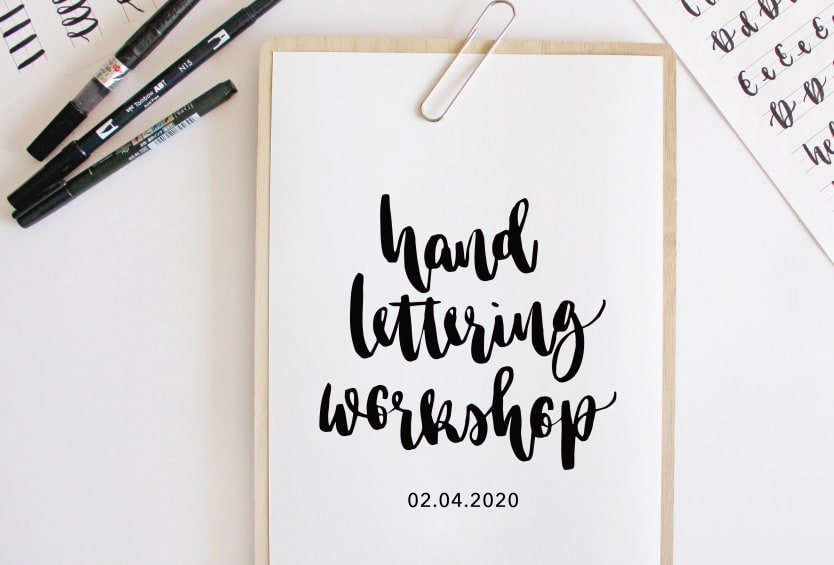 Tombow ABT
N15
hand
lettering
workshop
02.04.2020